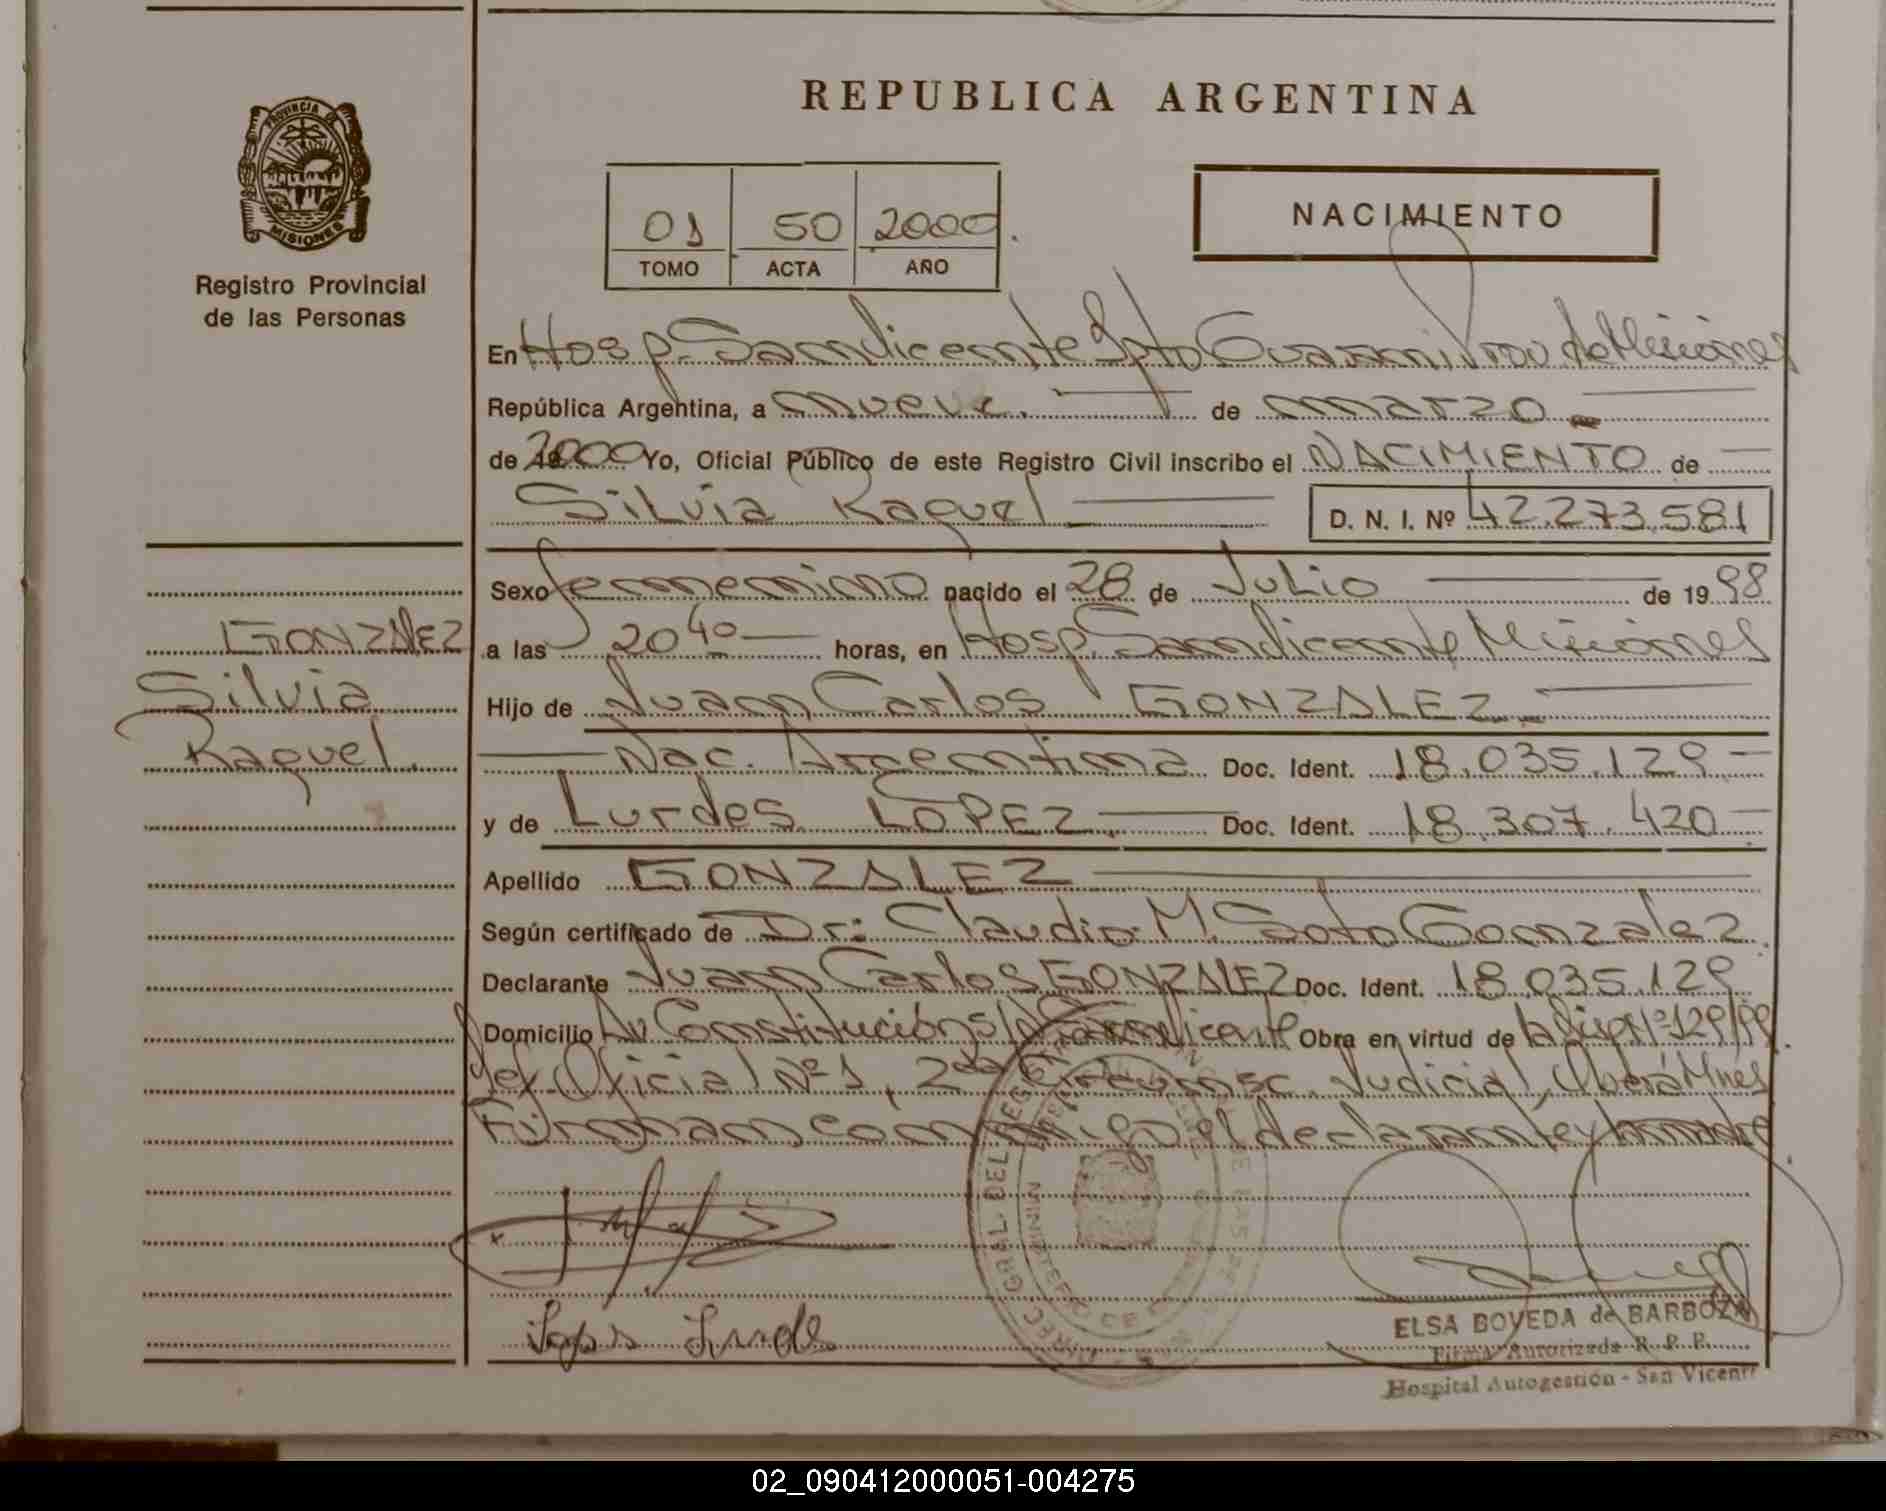 REPUBLICA ARGENTINA
PROVINCIA DE MISIONES
Registro Provincial
de las Personas
01 50 2000
TOMO ACTA AÑO
NACIMIENTO
En Hosp. San Vicente Dpto Guaraní Prov de Misiones
República Argentina, a nueve. de marzo
de 2000 Yo, Oficial Público de este Registro Civil inscribo el NACIMIENTO de
Silvia Raquel D. N. I. Nº 42.273.581
Sexo femenino nacido el 28 de Julio de 1998
GONZALEZ
Silvia
Raquel.
a las 20 40 horas, en Hosp. San Vicente Misiones
Hijo de Juan Carlos GONZALEZ
Nac. Argentina Doc. Ident. 18.035.129
y de Lurdes LOPEZ Doc. Ident. 18.307.420
Apellido GONZALEZ
Según certificado de Dr: Claudio M. Soto Gonzalez.
Declarante Juan Carlos GONZALEZ Doc. Ident. 18.035.129
Domicilio Av Constitución S/N San Vicente Obra en virtud de la Disp. Nº 129/99
Def. Oficial Nº 1, 2da Circunsc. Judicial, Oberá Mnes
Firman conmigo el declarante y la madre
DIREC. GRAL. DEL REGISTRO
MINISTERIO DE
Lops Lurdes
ELSA BOVEDA de BARBOZA
Firma Autorizada R. P. P.
Hospital Autogestión - San Vicente
02_090412000051-004275